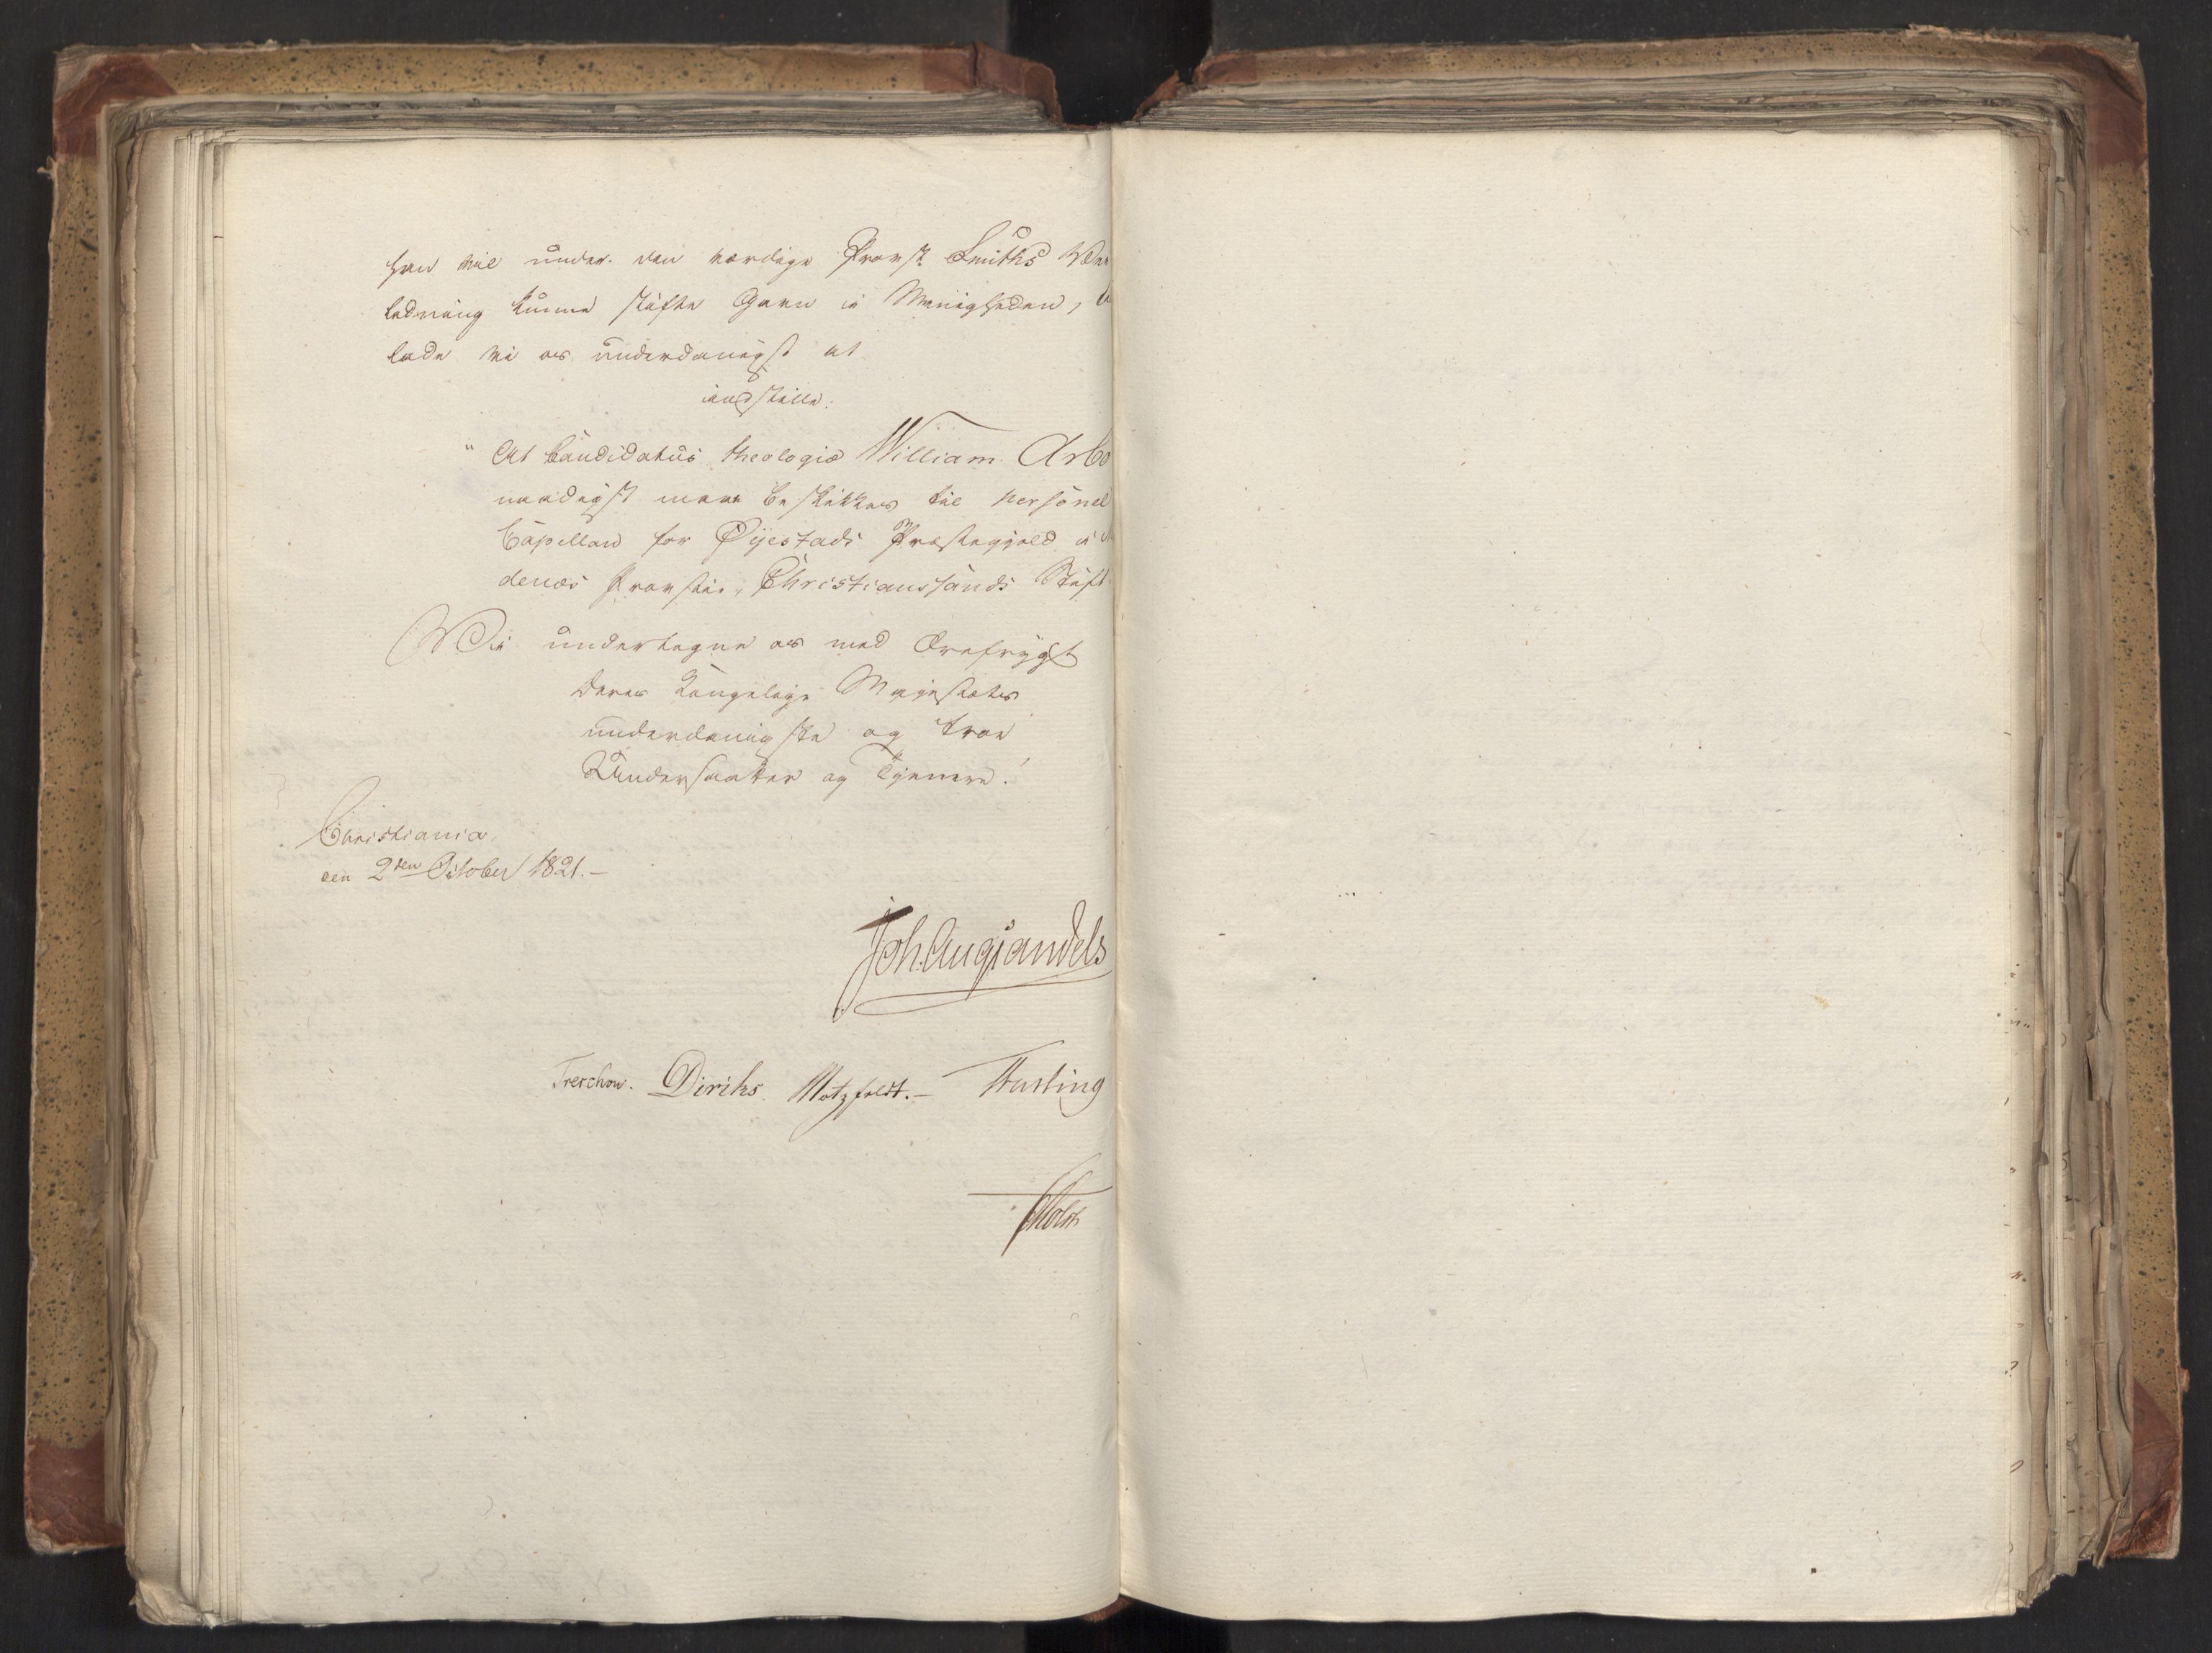 han vil under den værdige Provst Smiths Vei
ledning kunne stifte Gavn i Menigheden,
lade vi os underdanigst at
indstille:
"At Candidatus theologiæ William Arbo
naadigst maae beskikkes til personel
Capellan for Øijestads Præstegjeld i
denæs Provstie, Christianssands Stift
Vi undertegne os med Ærefrygt
Deres Kongelige Majestæts
underdanigste og troe
Undersaatter og Tjenere!
Christiania,
den 2den October 1821.-
Joh. Aug. Sandels
Treschow. Diriks. Motzfeldt.- Fasting
Holst